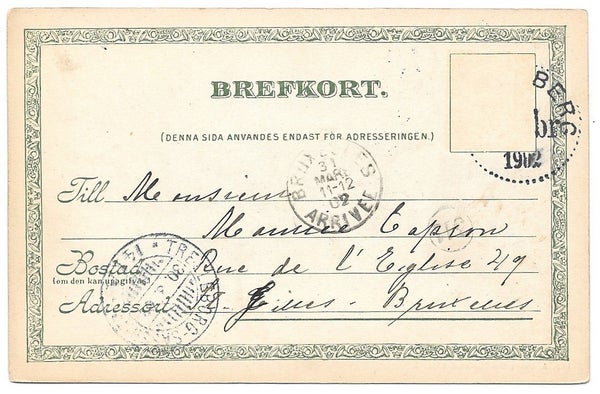 BREFKORT.
(DENNA SIDA ANVANDES ENDAST FÖR ADRESSERINGEN.)
BERG
br
1902
31
MARS
11-12
02
ARRIVEE
Till Monsieur
Maurice
Bostad Rue de l'Eglise 49
(om den kan uppgifvas)
Adressort St. Gilles - Bruxelles
TRELLEBORG
30